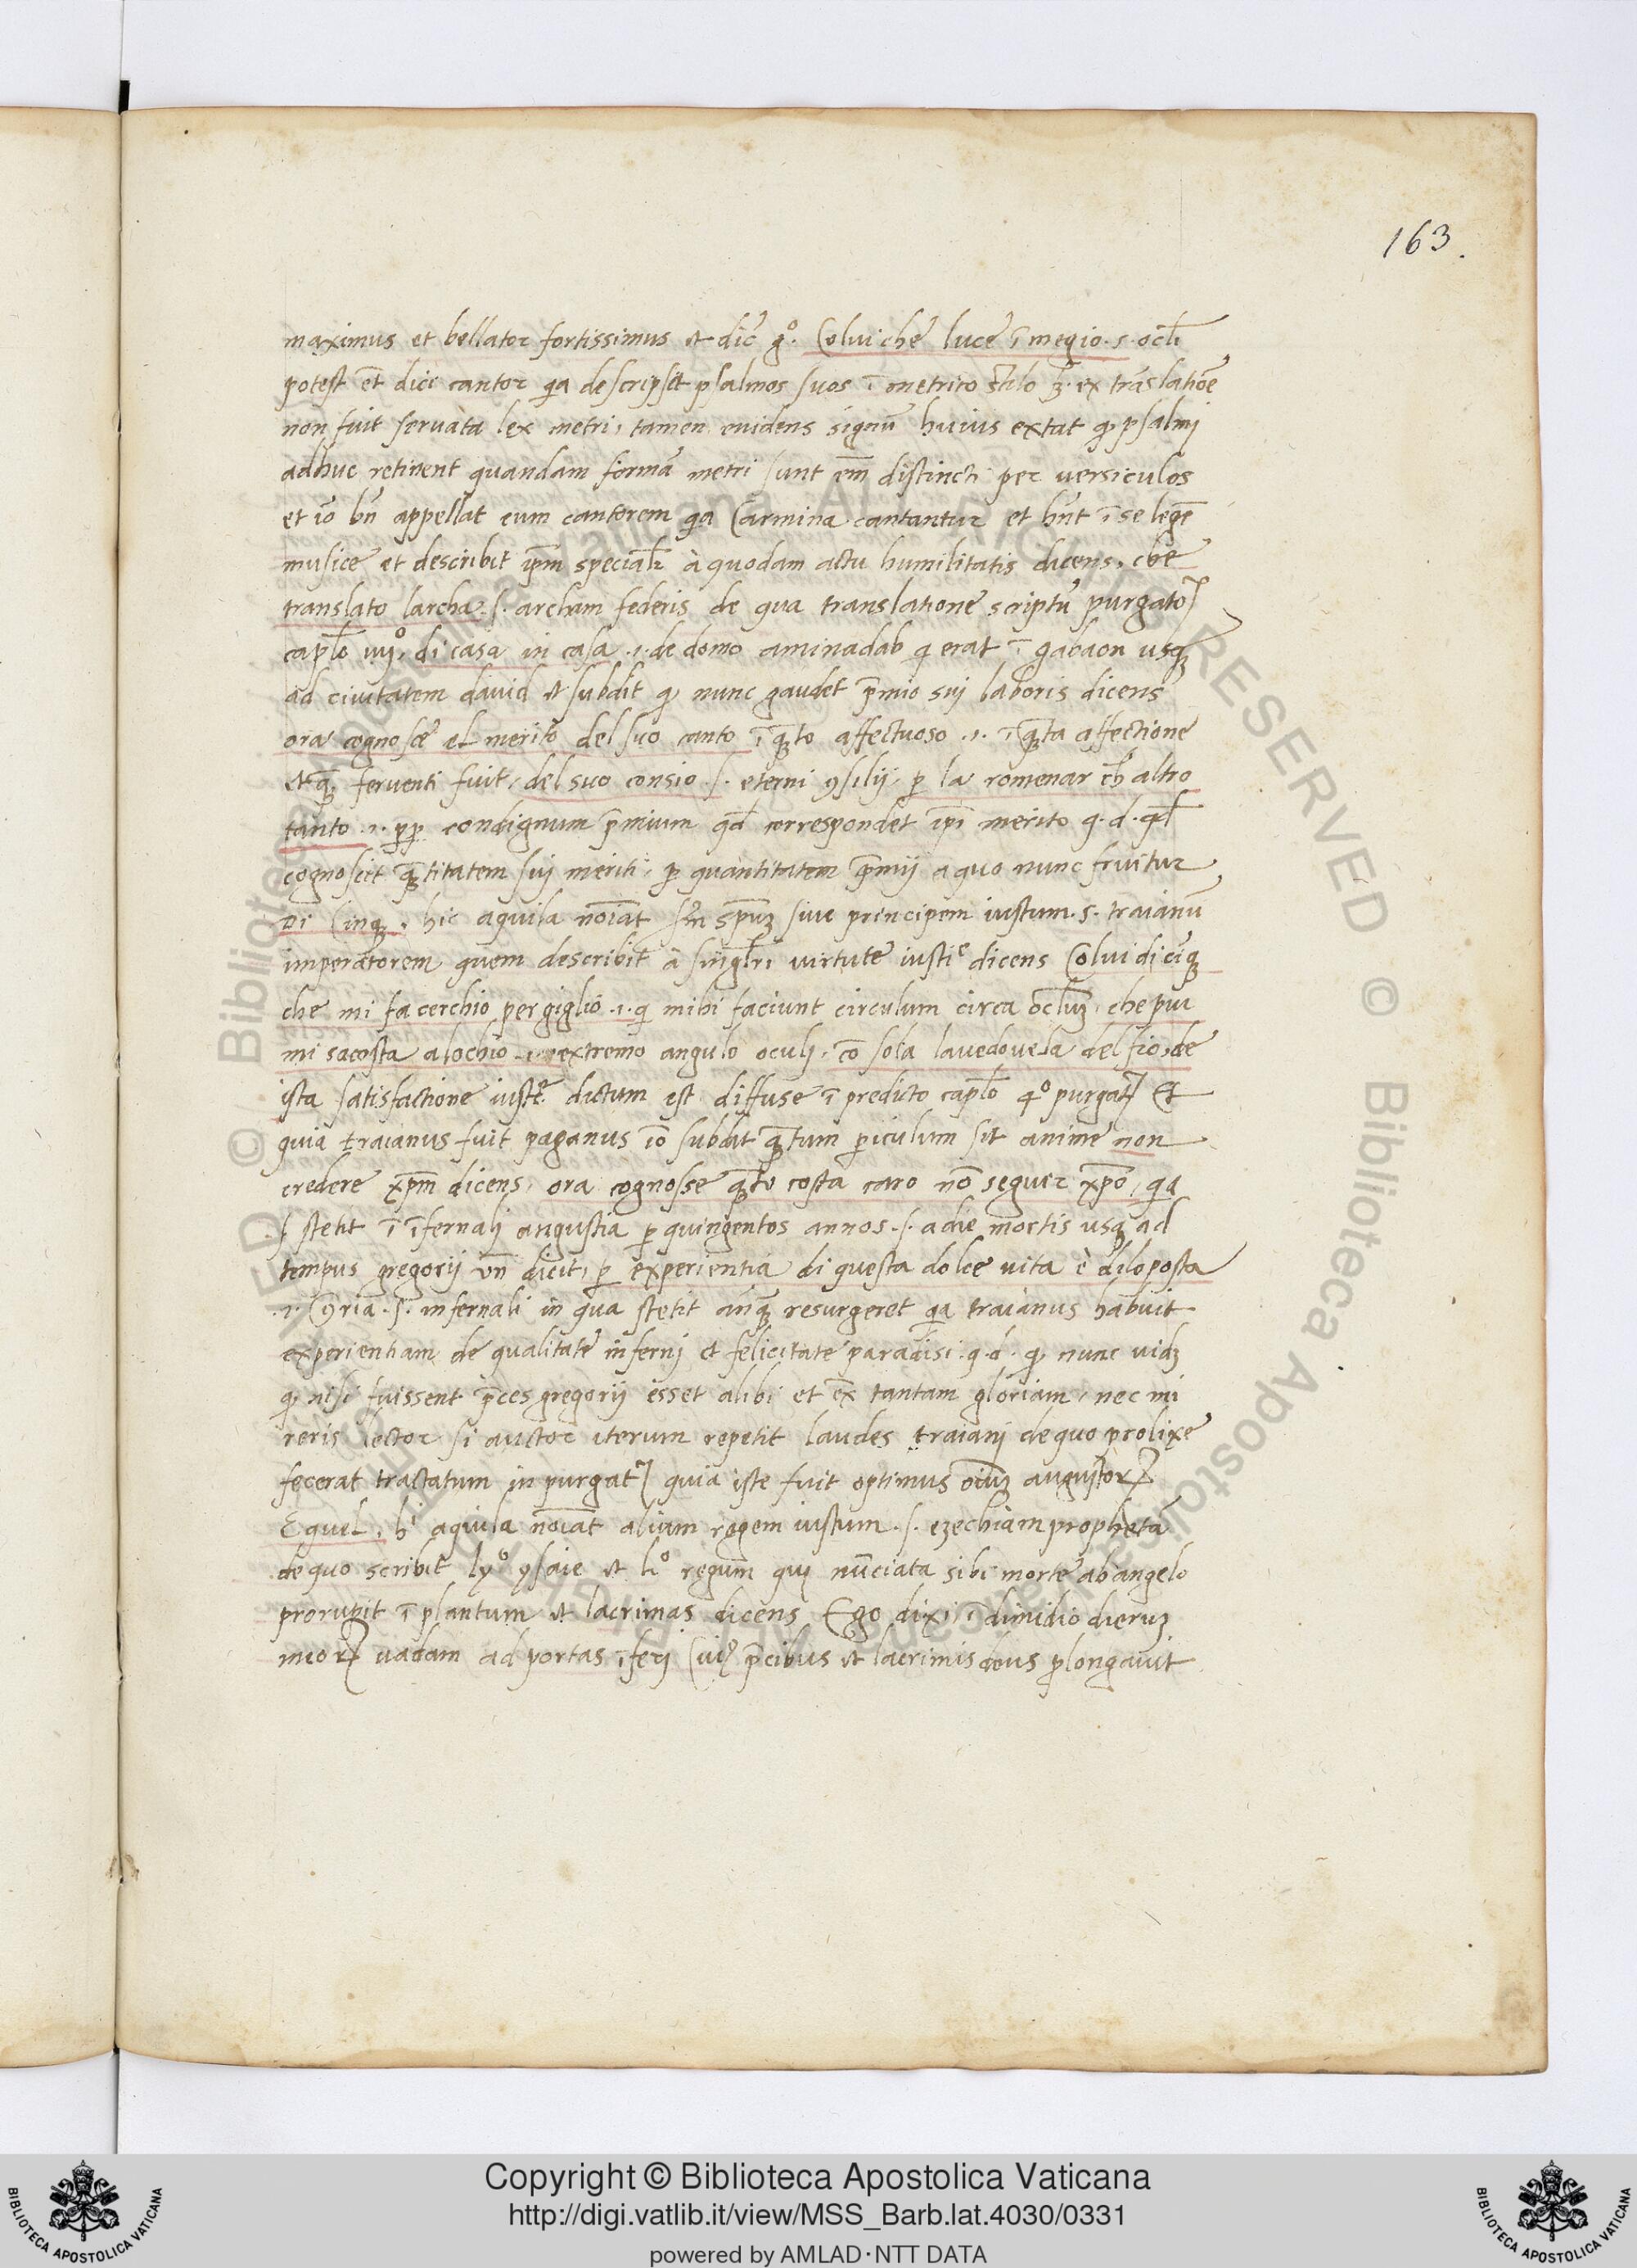 163.
maximus et bellator fortissimus et dic̄ gº. Colui che luce ī megio .s. ocłi
potest ēt dici cantor qa descripsit psalmos suos ī metrico stilo ꝫ. ex trāslatiōe
non fuit servata lex metri, tamen evidens signū huius extat q, psalmi
adhuc retinent quandam formā metri sunt em̄ distincti per versiculos
et iō bn̄ appellat eum cantorem qa Carmina cantantur et hn̄t ī se legē
musice et describit ip̄m specialr à quodam actu humilitatis dicens, che
translato larcha .s. archam federis de qua translatione scriptū purgato
caplo iiijº, di casa in casa .i. de domo aminadab q erat ī gabaon usqꝫ
ad civitatem david et subdit q, nunc gaudet p̄mio suj laboris dicens
ora cognosce el merito del suo canto ī qto affectuoso .i. ī qta affectione
et q ferventi fuit, del suo consio .s. eterni ꝯsilij, p la romenar ch altro
tanto .i. pp condignum p̄mium qd correspondet ip̄i merito q.d. qd
cognoscit qtitatem suj meriti, p quantitatem p̄mij a quo nunc fruitur
Di Cinqꝫ, hic aquila noīat spm̄ sive principem iustum .s. traianū
imperatorem quem describit à singlri virtute iustie dicens Colui di cīqꝫ
che mi fa cerchio per giglio .i. q mihi faciunt circulum circa oclum, che piu
mi sacosta alochio extremo angulo oculj, cō sola lavedovela del fio, de
ista satisfactione iuste dictum est diffuse ī predicto caplo 4º purgat Et
quia traianus fuit paganus iō subdit qtum piculum sit anime non
credere xp̄m dicens, ora cognosse qto costa caro nō seguir xp̄o, qa
.s. stetit ī īfernalj angustia p quingentos annos .s. a die mortis usqꝫ ad
tempus gregorij vn̄ dicit, p experientia di questa dolce vita è diloposta
.i. ꝯria .s. infernali in qua stetit anqꝫ resurgeret qa traianus habuit
experientiam de qualitate infernj et felicitate paradisi .q.d. q, nunc videꝫ
q, nisi fuissent p̄ces gregorij esset alibi et ex tantam gloriam, nec mi
reris lector si auctor iterum repetit laudes traianj de quo prolixe
fecerat tractatum in purgat quia iste fuit optimus oīuꝫ augustorꝝ
E quel, hi aquila noīat alium regem iustum .s. ezechiam prophetā
de quo scribit ysaie et liº regum qui nūciata sibi morte ab angelo
prorupit ī plantum et lacrimas dicens Ego dixi, ī dimidio dieruꝫ
meorꝝ vadam ad portas īferj p̄cibus et lacrimis deus plongavit
Copyright © Biblioteca Apostolica Vaticana
http://digi.vatlib.it/view/MSS_Barb.lat.4030/0331
powered by AMLAD·NTT DATA
BIBLIOTECA APOSTOLICA VATICANA
BIBLIOTECA APOSTOLICA VATICANA